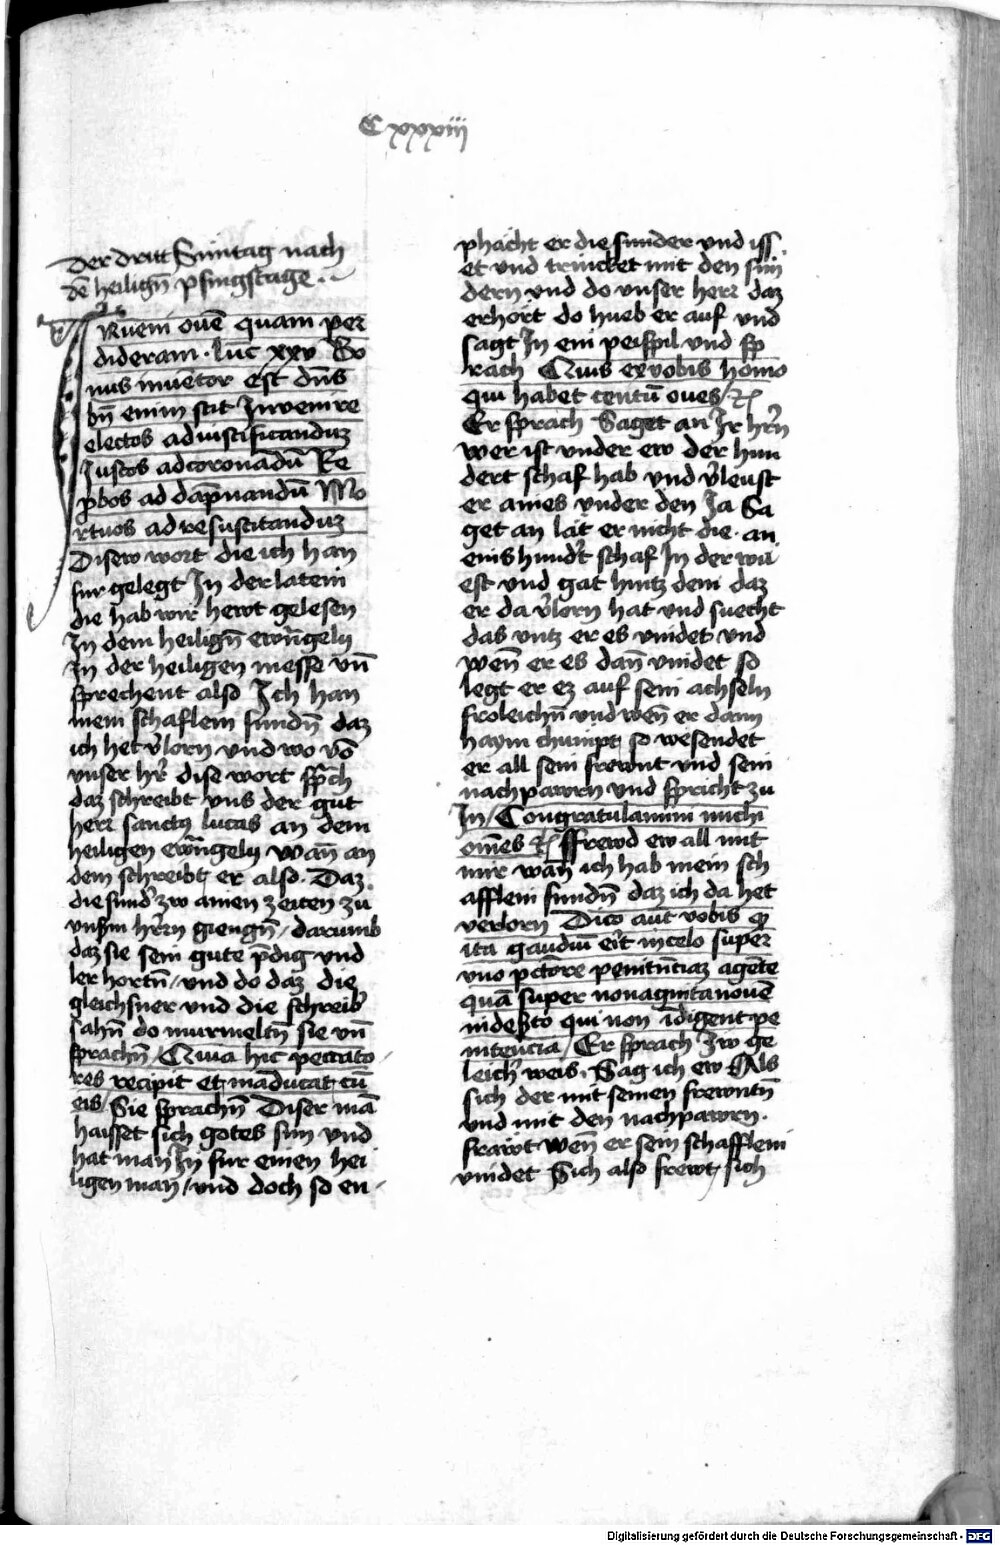 C xxxiii
Der dritt Suntag nach
dē heilign̄ pfingstage.
Inueni ouē quam per
dideram. luc̄ xxv Bo
nus inuētor est dn̄s
bn̄ enim scit Inuenire
electos ad iustificanduz
Iustos ad coronadū Re
p̄bos ad dāpnandū Mo
rtuos ad resuscitanduz
Disew wort die ich han
fur gelegt In der latein
die hab wir hewt gelesen
In dem heilign̄ ewn̄gely
In der heiligen messe vn̄
sprechent also Ich han
mein schaflein fundn̄ daz
ich het v̓lorn vnd wo vō
vnser hr̓ dise wort sp̄ch
daz schreibt vns der gut
herr sanctꝯ lucas an dem
heiligen ewn̄gely wān an
dem schreibt er also. Daz
die sund̓ zw ainen zeiten zu
vnſm hr̓rn giengn̄ / darumb
daz sie sein gute p̄dig vnd
ler hortn̄ / vnd do daz die
gleichsner vnd die schreib̓
sahn̄ do murmeltn̄ sie vn̄
sprachn̄ / Quia hic peccato
res recipit et māducat cū
eis / Sie sprachn̄ Diser mā
haisset sich gotes sun vnd
hat man In fur einen hei
ligen man / vnd doch so en
phacht er die sunder vnd iss
et vnd trincket mit den sun
dern vnd do vnser herr daz
erhort do hueb er auf vnd
sagt In ein peispil vnd sp
rach Quis ex vobis homo
qui habet centū oues / ꝛc̄
Er sprach Saget an Ir hr̓n
wer ist vnder ew der hun
dert schaf hab vnd v̓leust
er aines vnder den Ja Sa
get an lat er nicht die. an
enis hund̓t schaf In der wu
est vnd gat hintz dem daz
er da v̓lorn hat vnd suecht
das vntz er es vindet vnd
wen̄ er es dan̄ vindet so
legt er ez auf sein achseln
froleichn̄ vnd wen̄ er dann
haym chumpt so wesendet
er all sein frewnt vnd sein
nachpawrn vnd spricht zu
In / Congratulamini michi
om̄es ꝛc̄ ffrewd ew all mit
mir wan̄ ich hab mein sch
afflein fundn̄ daz ich da het
verlorn Dico aut̄ vobis ꝙ
ita gaudiū er̓t in celo super
vno pctōre penitn̄ciaz agēte
quā super nonagintanouē
indesto qui non īdigent pe
nitencia / Er sprach Zw ge
leich̓ weis. Sag ich ew Als
sich der mit seinen frewntn̄
vnd mit den nachpawrn.
frawt wen̄ er sein schafflein
vindet Sich also frewt sich
Digitalisierung gefördert durch die Deutsche Forschungsgemeinschaft - DFG